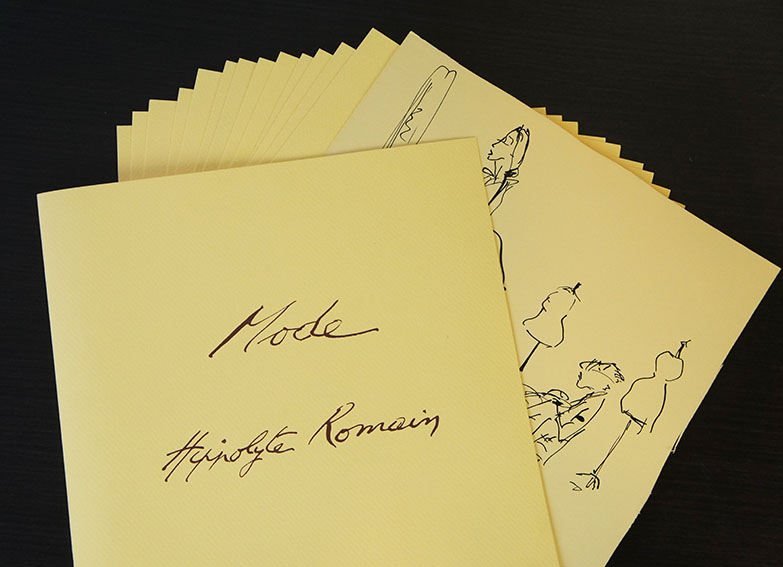 Mode
Hippolyte Romain